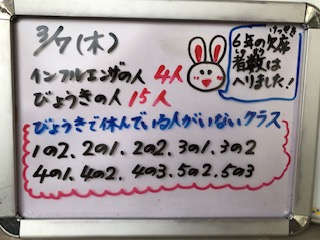 3/7(木)
インフルエンザの人 4人
びょうきの人 15人
けっせき
6年の欠席
しゃすう
者数は
へりました!
びょうきで休んでいる人がいないクラス
1の2. 2の1. 2の2. 3の1. 3の2
4の1. 4の2. 4の3. 5の2. 5の3